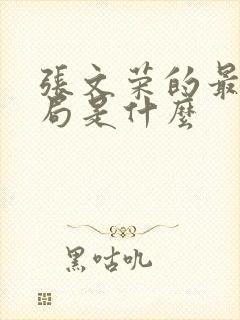 張文荣的最
局是什麼
黑咕㕶